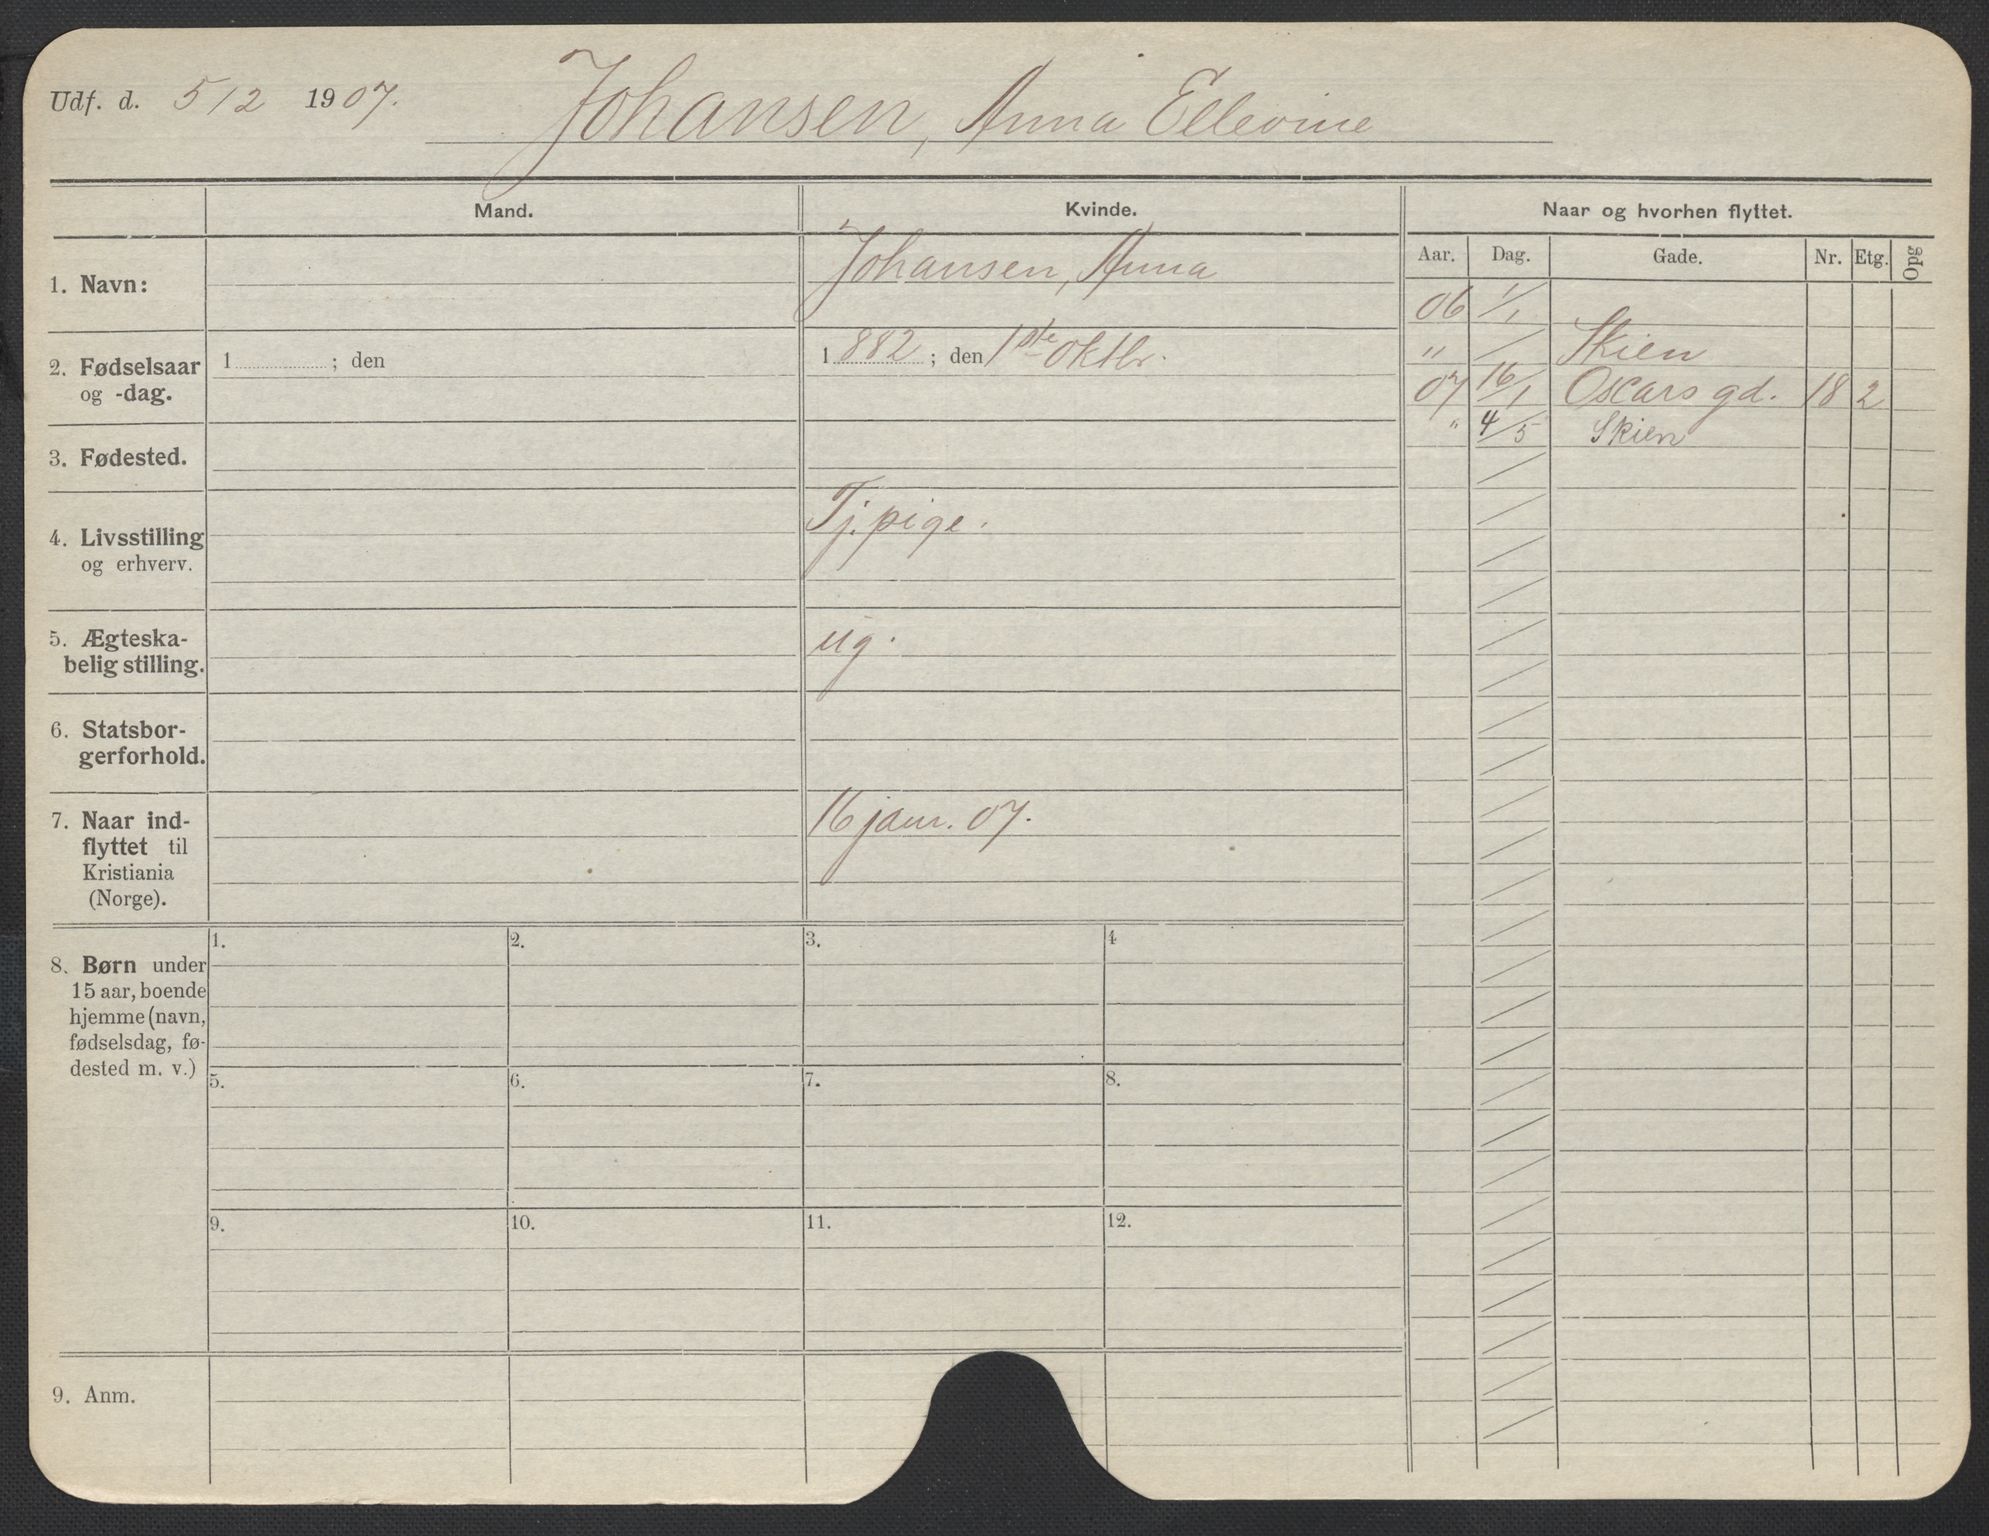 Udf. d. 5/2 1907. Johansen, Anna Ellevine
Mand. Kvinde. Naar og hvorhen flyttet.
Aar. Dag. Gade. Nr. Etg. Opg
1. Navn: Johansen, Anna
2. Fødselsaar og -dag. 1 ; den 1882 ; den 1ste oktbr.
3. Fødested.
4. Livsstilling og erhverv. Tj. pige.
5. Ægteska-
belig stilling. ug.
6. Statsbor-
gerforhold.
7. Naar ind-
flyttet til
Kristiania
(Norge). 16 janr. 07.
06 1/1
" / Skien
07 16/1 Oscars gd. 18 2
" 4/5 Skien
8. Børn under
15 aar, boende
hjemme (navn,
fødselsdag, fø-
dested m. v.)
1. 2. 3. 4
5. 6. 7. 8.
9. 10. 11. 12.
9. Anm.